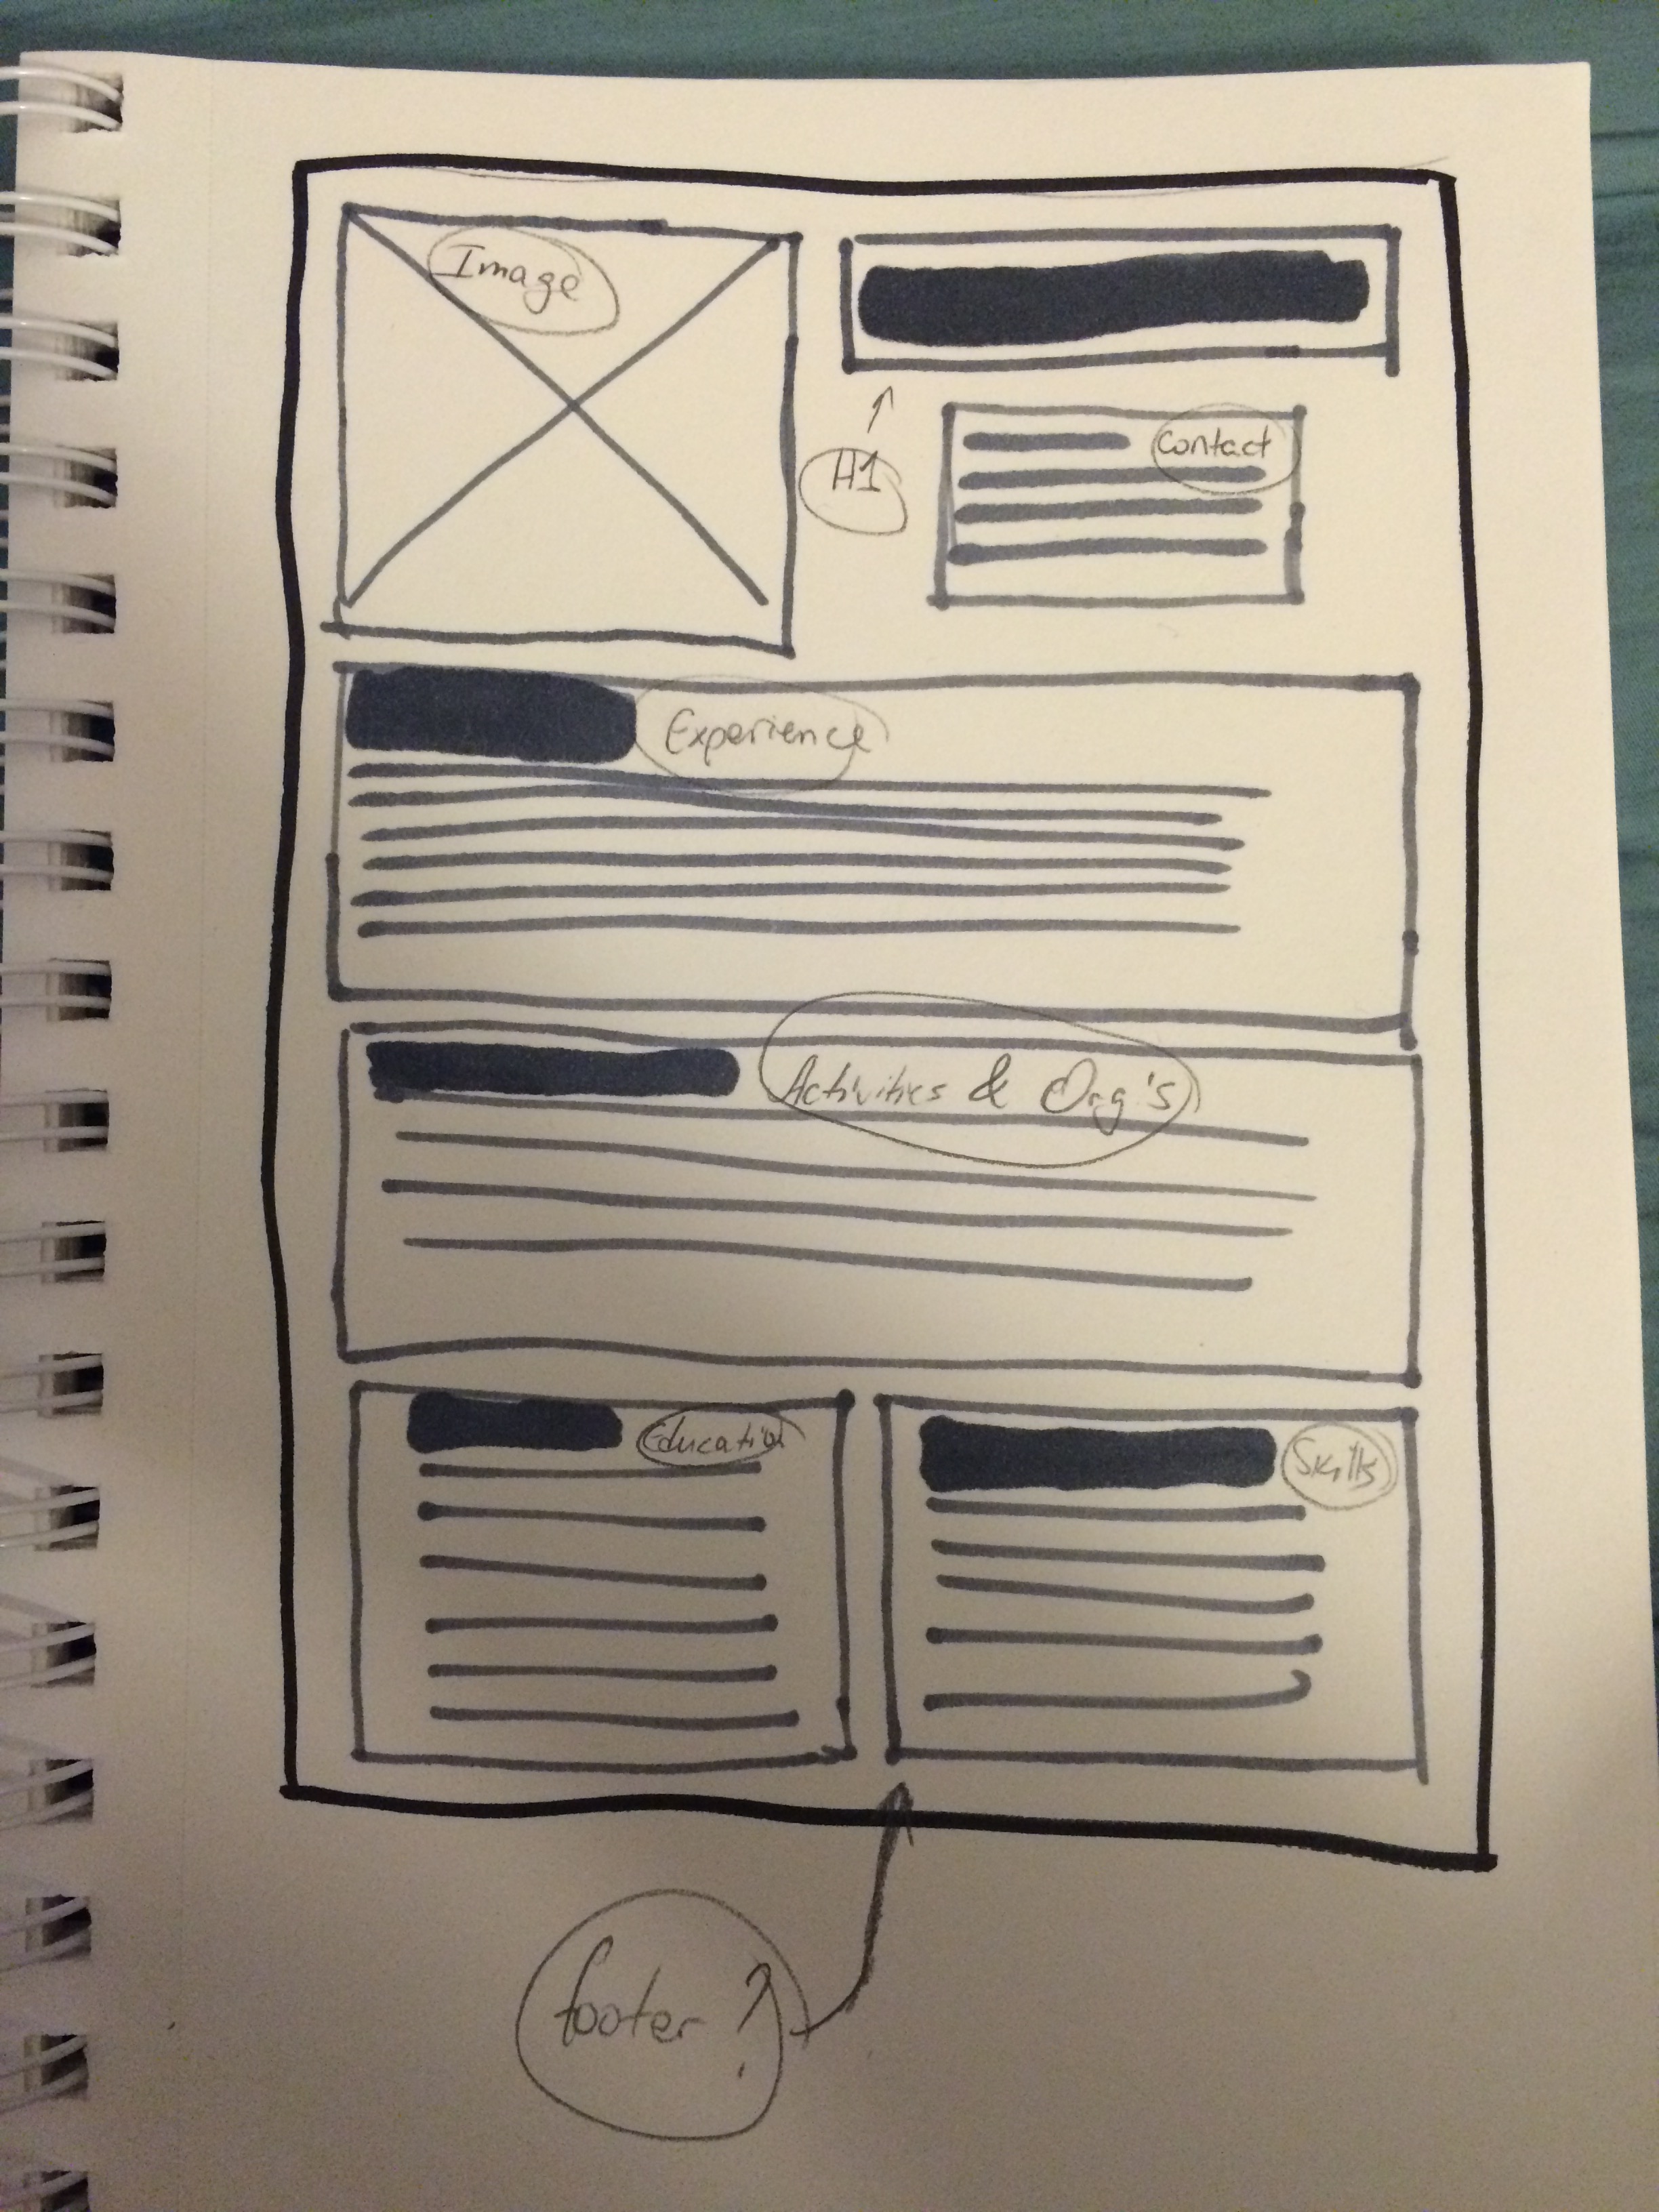 Image
H1
Contact
Experience
Activities & Org's
Education
Skills
footer?